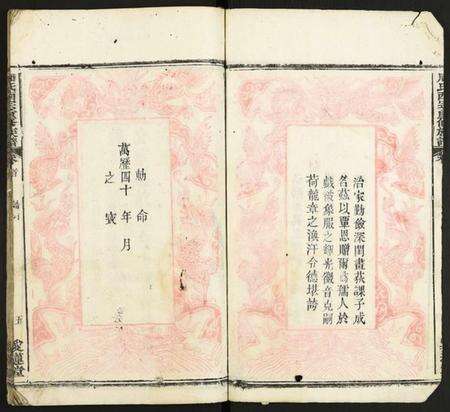 治家勤儉深閨畫荻課子成
名茲以覃恩贈爾爲孺人於
戲象服之光徽音克嗣
荷龍章之渙汗令德堪誇
勅命
萬歷四十年月
之寶
卷首
五
愛蓮堂